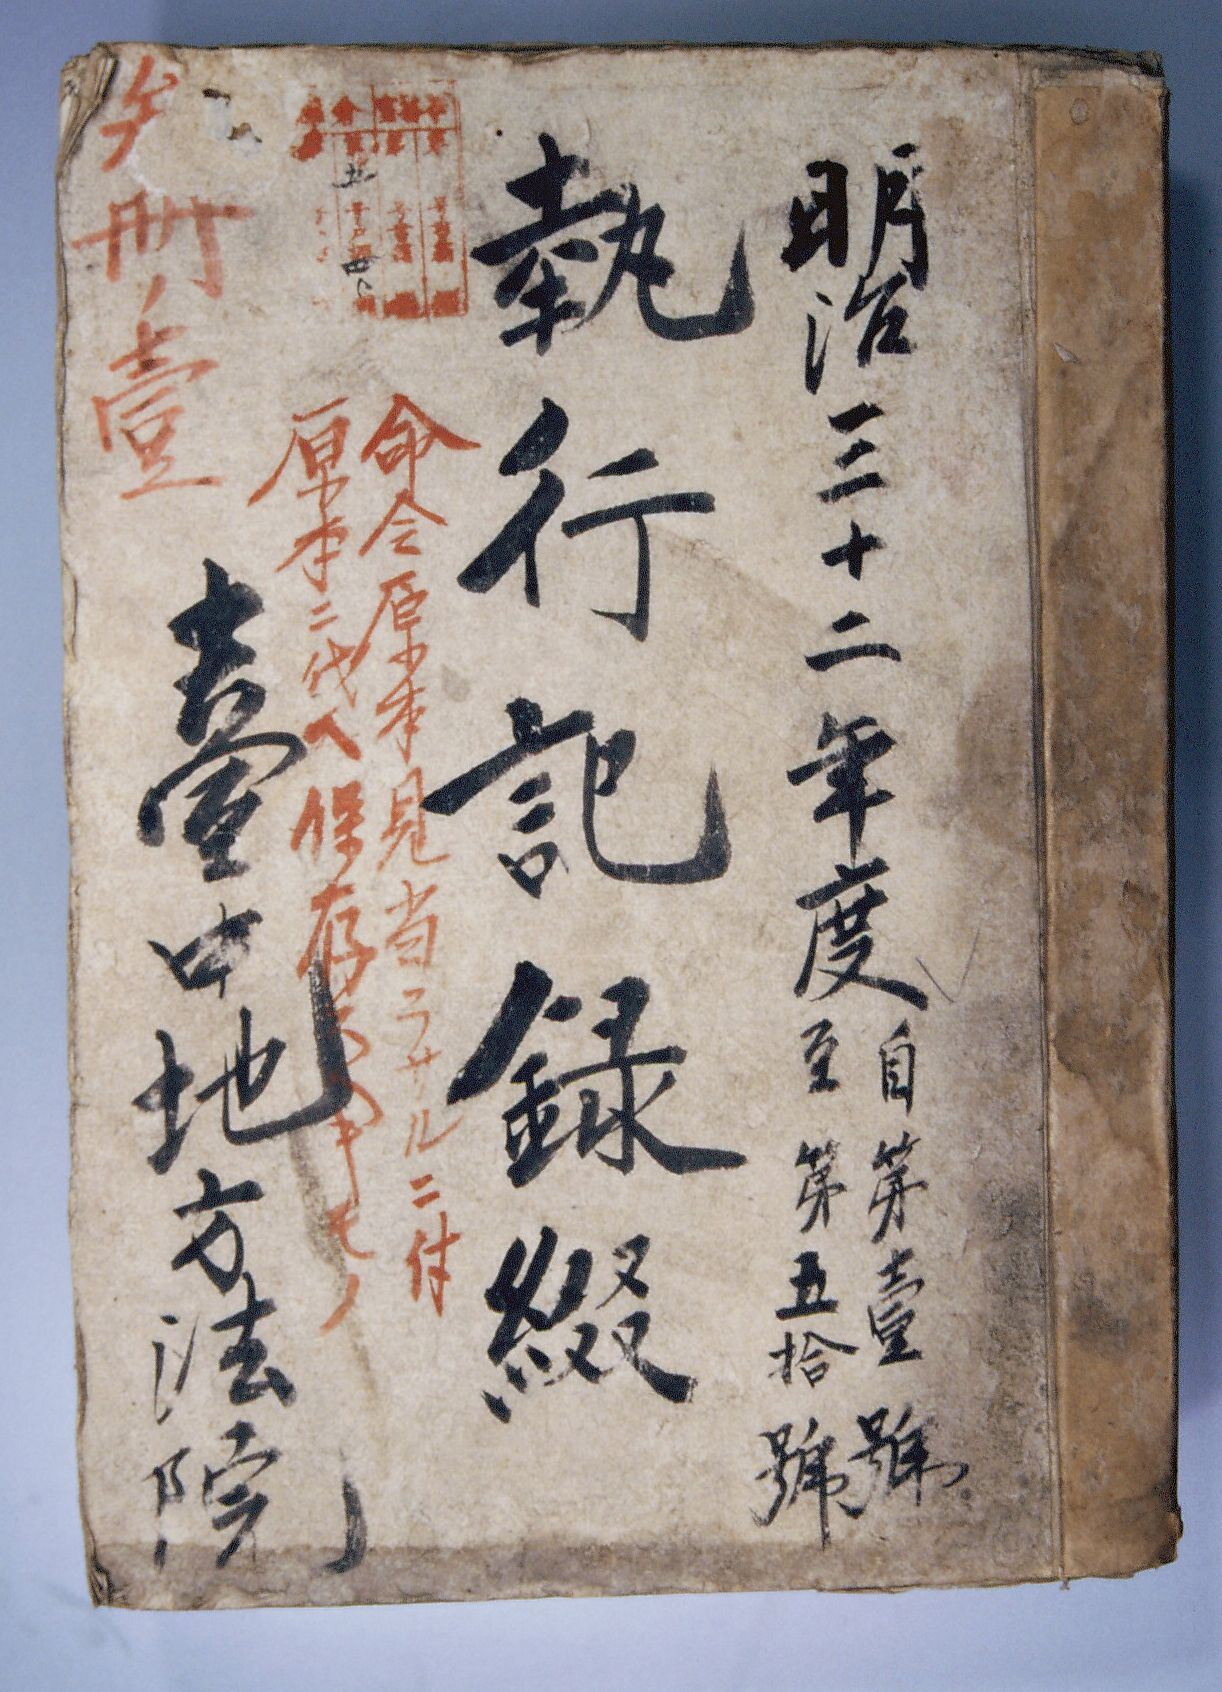 明治三十二年度
自第壹號
至第五拾號
執行記錄綴
命令原本見当ラサルニ付
原本ニ代ヘ保存スヘキモノ
臺中地方法院
冊ノ壹